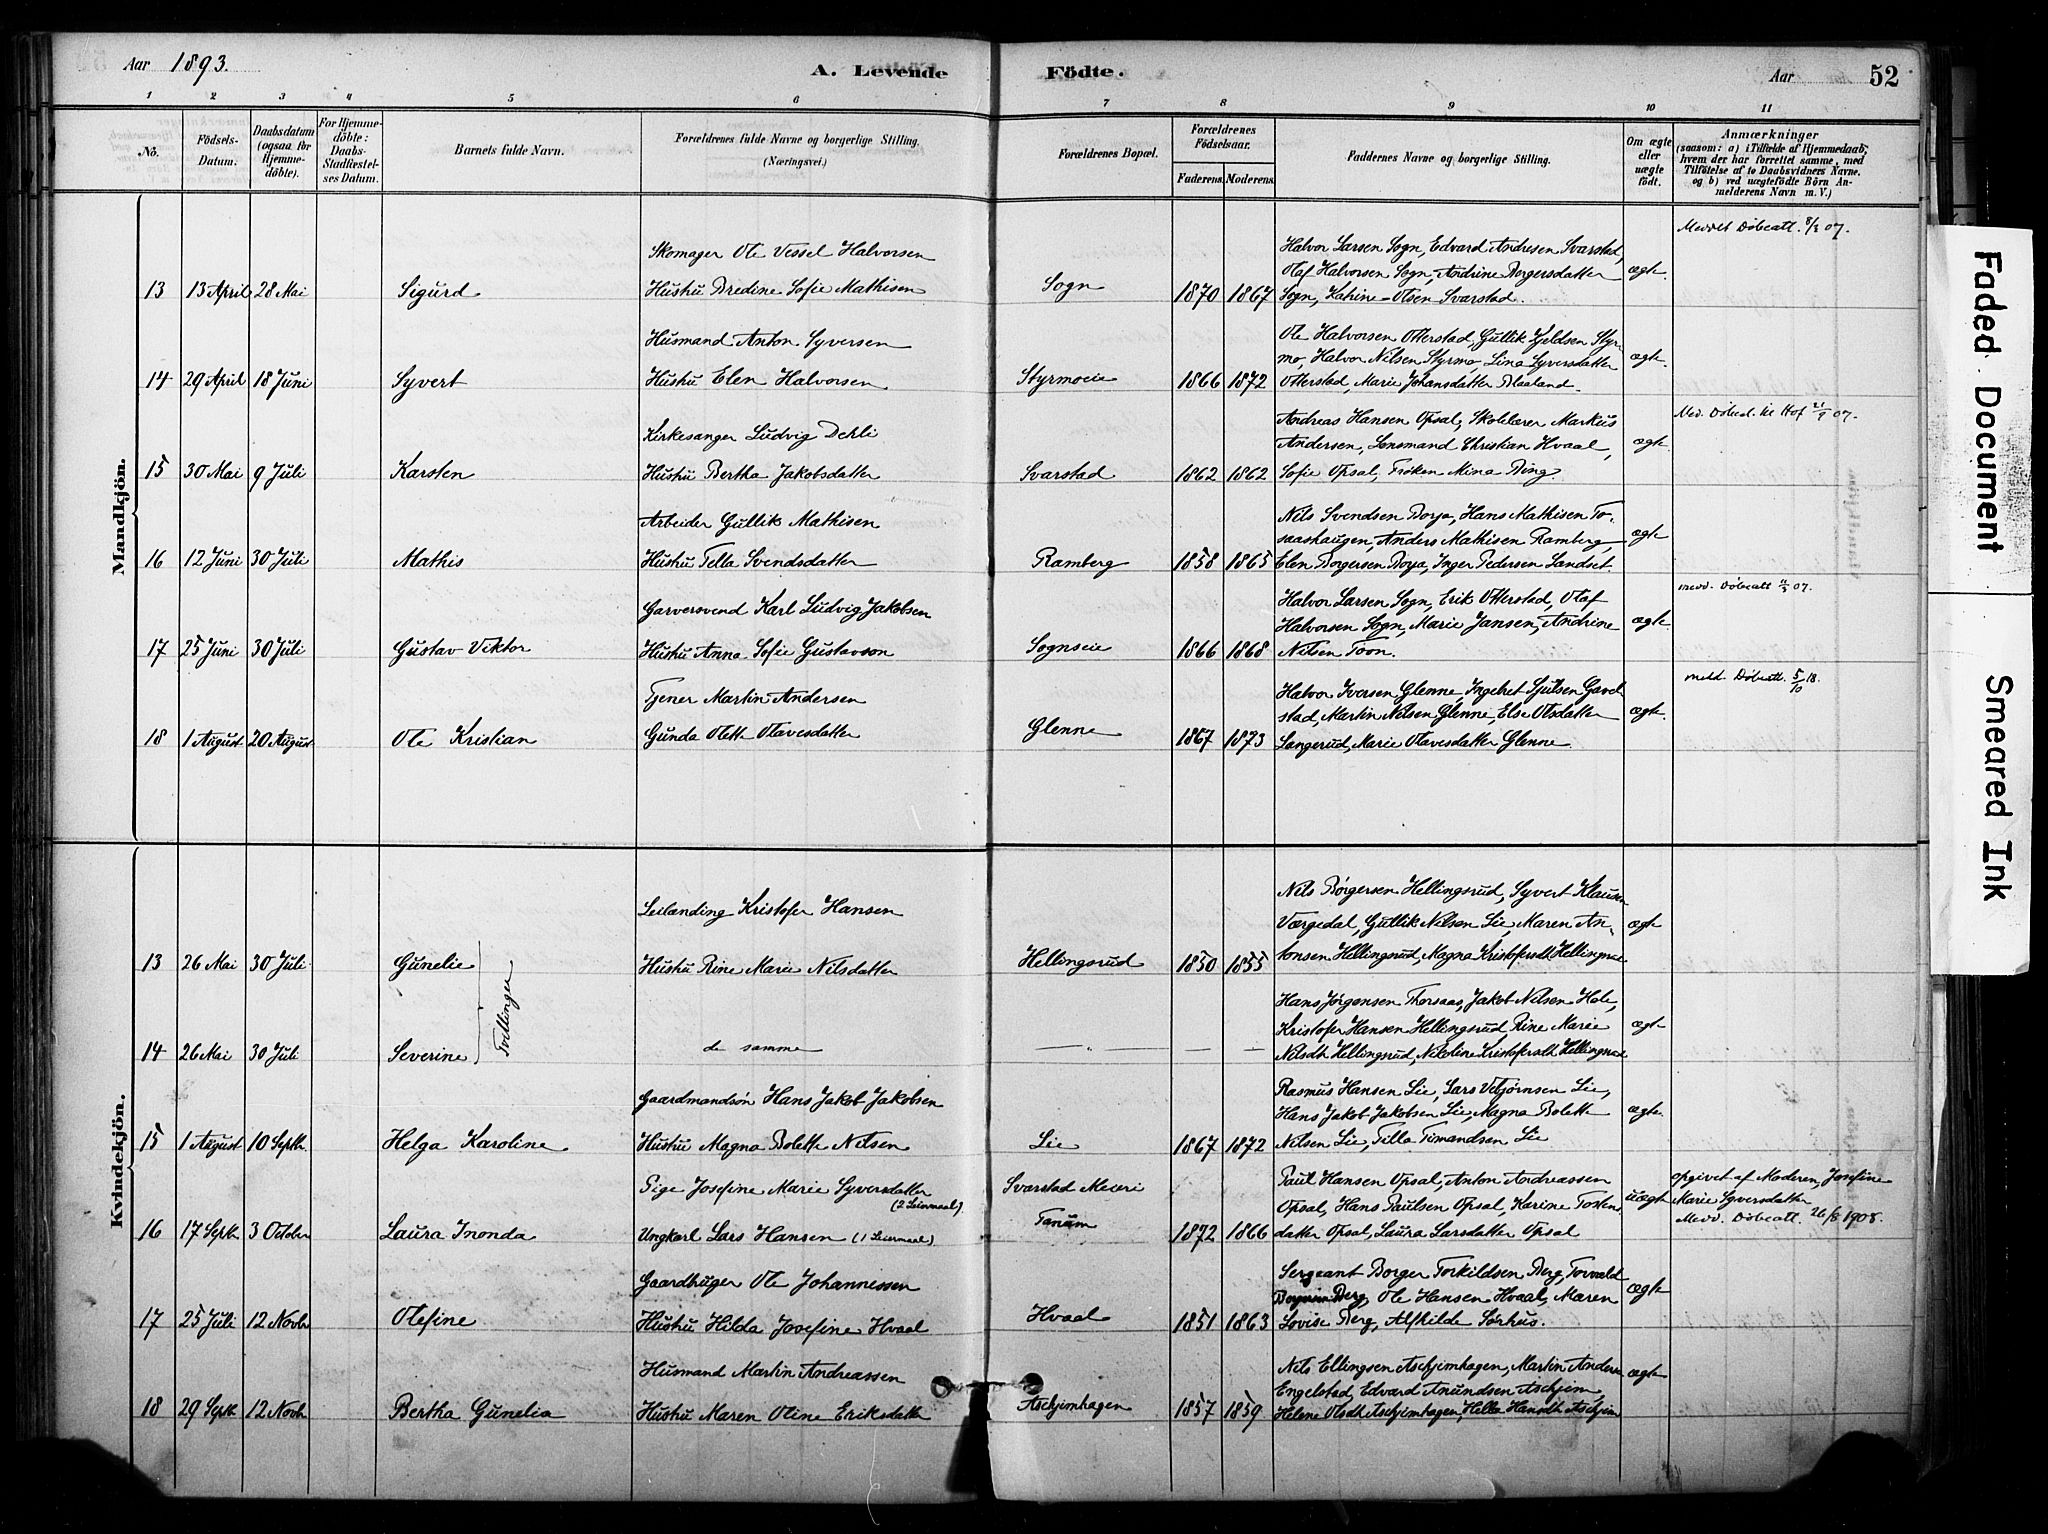 Aar 1893.
A. Levende Födte.
Aar
52
1 2 3 4 5 6 7 8 9 10 11
No.
Födsels-Datum.
Daabsdatum (ogsaa for Hjemme-döbte).
For Hjemme-döbte: Daabs-Stadfæstel-ses Datum.
Barnets fulde Navn.
Forældrenes fulde Navne og borgerlige Stilling. (Næringsvei.)
Forældrenes Bopæl.
Forældrenes Födselsaar.
Faderens. Moderens.
Faddernes Navne og borgerlige Stilling.
Om ægte eller uægte födt.
Anmærkninger
(saasom: a) i Tilfælde af Hjemmedaab, hvem der har forrettet samme, med Tilföielse af to Daabsvidners Navne, og b) ved uægtefödte Börn An-melderens Navn m. V.)
Mandkjön.
Meddelt Døbeatt. 8/3 07.
Skomager Ole Vessel Halvorsen
Halvor Larsen Sogn, Edvard Andresen Svarstad,
Olaf Halvorsen Sogn, Andrine Borgersdatter ægte.
13 13 April 28 Mai Sigurd Hustru Bredine Sofie Mathisen Sogn 1870 1867 Sogn, Katrine Olsen Svarstad.
Husmand Anton Syversen
Ole Halvorsen Otterstad, Gullik Kjeldsen Styr-
mo, Halvor Nilsen Styrmo, Lina Syversdatter ægte.
14 29 April 18 Juni Syvert Hustru Elen Halvorsen Styrmoeie 1866 1872 Otterstad, Marie Johansdatter Blaaland.
Kirkesanger Ludvig Dehli
Andreas Hansen Opsal, Skolelærer Markus
Med. Døbeatt. til Hof 21/9 07.
Andersen, Lensmand Christian Hvaal, ægte.
15 30 Mai 9 Juli Karsten Hustru Bertha Jakobsdatter Svarstad 1862 1862 Sofie Opsal, Frøken Mina Bing.
Arbeider Gullik Mathisen
Nils Svendsen Borja, Hans Mathisen To-
saashaugen, Anders Mathisen Ramberg, ægte
16 12 Juni 30 Juli Mathis Hustru Tella Svendsdatter Ramberg 1858 1865 Elen Borgersen Borja, Inger Pedersen Landset.
Garversvend Karl Ludvig Jakobsen
Halvor Larsen Sogn, Erik Otterstad, Olaf
medd. Døbeatt 11/3 07.
Halvorsen Sogn, Marie Jansen, Andrine ægte.
17 25 Juni 30 Juli Gustav Viktor Hustru Anna Sofie Gustavson Sognseie 1866 1868 Nilsen Toon.
Tjener Martin Andersen
Halvor Iversen Glenne, Ingebret Sjulsen Gavel
meld. Døbeatt. 5/10 18.
stad, Martin Nilsen Glenne, Else Olsdatter ægte.
18 1 August 20 August Ole Kristian Gunda Olette Olavesdatter Glenne 1867 1873 Langerud, Marie Olavesdatter Glenne.
Kvindekjön.
Leilænding Kristofer Hansen
Nils Børgersen Hellingsrud, Syvert Klausen
Værgedal, Gullik Nilsen Lie, Maren An- ægte
13 26 Mai 30 Juli Gunelie Tvillinger Hustru Rine Marie Nilsdatter Hellingsrud 1850 1855 tonsen Hellingsrud, Magna Kristofersdt Hellingsrud
Hans Jørgensen Thorsaas, Jakob Nilsen Hole,
Kristofer Hansen Hellingsrud, Rine Marie ægte
14 26 Mai 30 Juli Severine de samme — " — — Nilsdt Hellingsrud, Nikoline Kristofersdt Hellingsrud
Gaardmandsøn Hans Jakob Jakobsen
Rasmus Hansen Lie, Lars Vebjørnsen Lie,
Hans Jakob Jakobsen Lie, Magna Bolette ægte.
15 1 August 10 Septbr Helga Karoline Hustru Magna Bolette Nilsen Lie 1867 1872 Nilsen Lie, Tilla Timandsen Lie
Pige Josefine Marie Syversdatter (2 Leiermaal).
Svarstad Meieri
Paul Hansen Opsal, Anton Andreassen
opgivet af Moderen, Josefine
Opsal, Hans Paulsen Opsal, Karine Torsten uægte
Marie Syversdatter.
16 17 Septbr 3 October Laura Inonda Ungkarl Lars Hansen (1 Leiermaal) Tanum 1872 1866 datter Opsal, Laura Larsdatter Opsal
Medd. Døbeatt. 26/8 1908.
Gaardbruger Ole Johannessen
Sergeant Borger Torkildsen Berg, Torvald
Berg, Ole Hansen Hvaal, Maren ægte
17 25 Juli 12 Novbr Olefine Hustru Hilda Josefine Hvaal Hvaal 1851 1863 Lovise Berg, Alfhilde Sørhus.
Husmand Martin Andreassen
Nils Ellingsen Aschjimhagen, Martin Anders
Engelstad, Edvard Anundsen Aschjem, ægte
18 29 Septbr 12 Novbr Bertha Gunelia Hustru Maren Oline Eriksdatter Aschjimhagen 1857 1859 Helene Olsdt Aschjimhagen, Hella Hansdt Aschjem
Faded Document
Smeared Ink